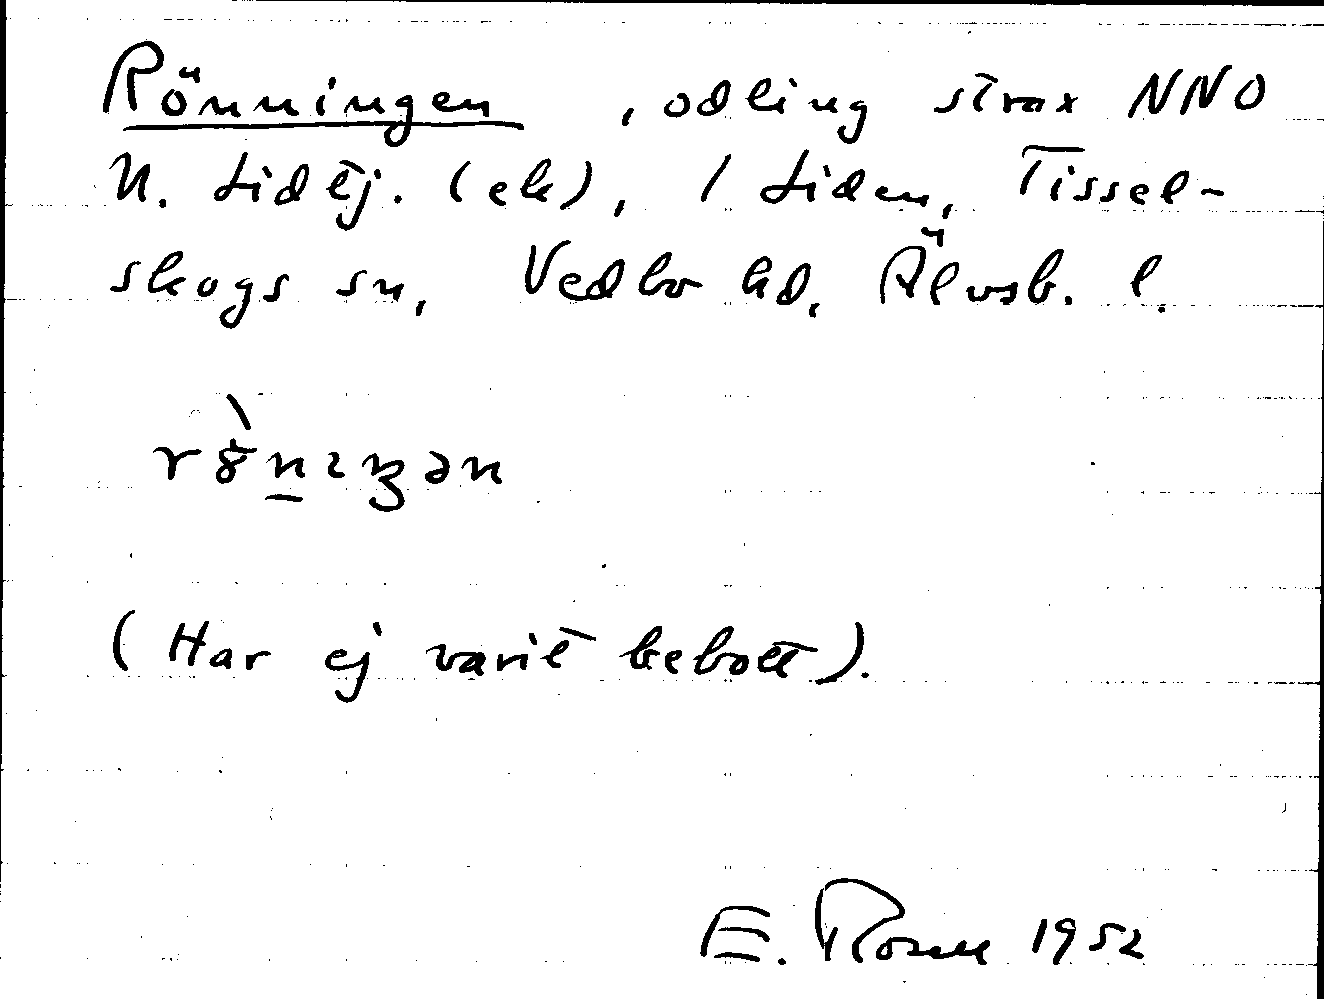 Rönningen , odling strax NNO
N. Lidtj. (ek), 1 Liden, Tissel-
skogs sn, Vedbo hd, Älvsb. l.
(Har ej varit bebott).
E. Rosell 1952